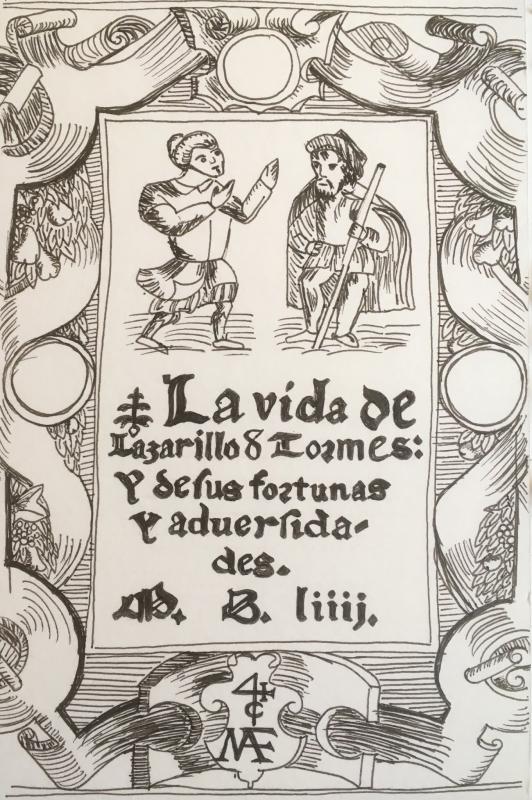 La vida de
Lazarillo d Tormes:
Y de sus fortunas
Y aduersida-
des.
M. D. liiij.
4 F
C
MAF